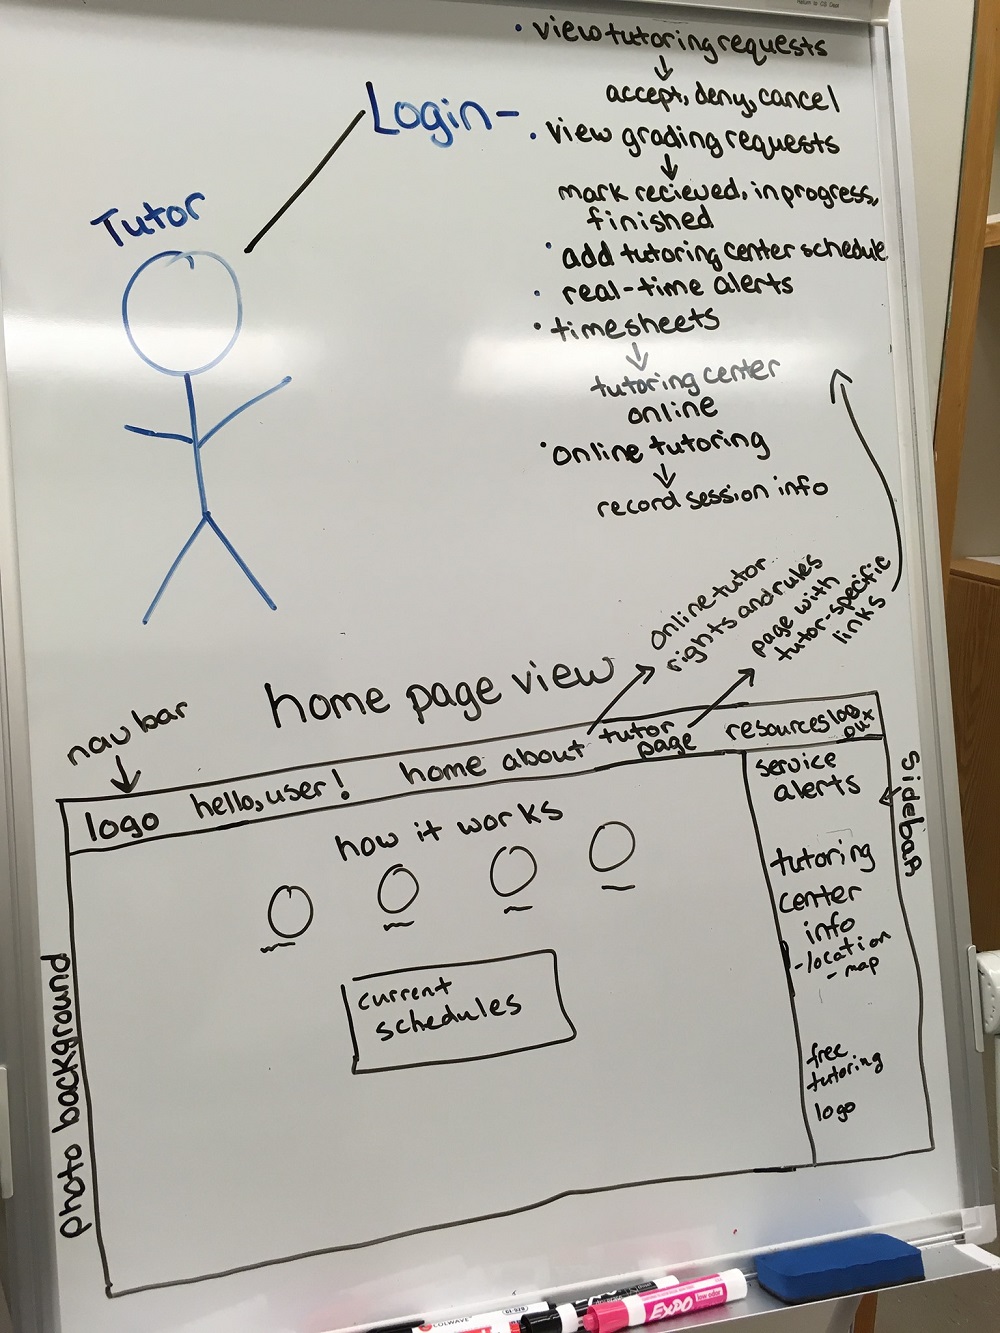 Return to CIS Dept
• view tutoring requests
↓
accept, deny, cancel
Login -
• view grading requests
↓
mark recieved, in progress,
finished
• add tutoring center schedule
• real-time alerts
• timesheets
↓
tutoring center
online
• online tutoring
↓
record session info
Tutor
online tutor
rights and rules
page with
tutor-specific
links
home page view
nav bar
logo
hello, user!
home
about
tutor
page
resources
log
out
how it works
current
schedules
service
alerts
tutoring
center
info
-location
-map
free
tutoring
logo
sidebar
photo background
EXPO
low odor